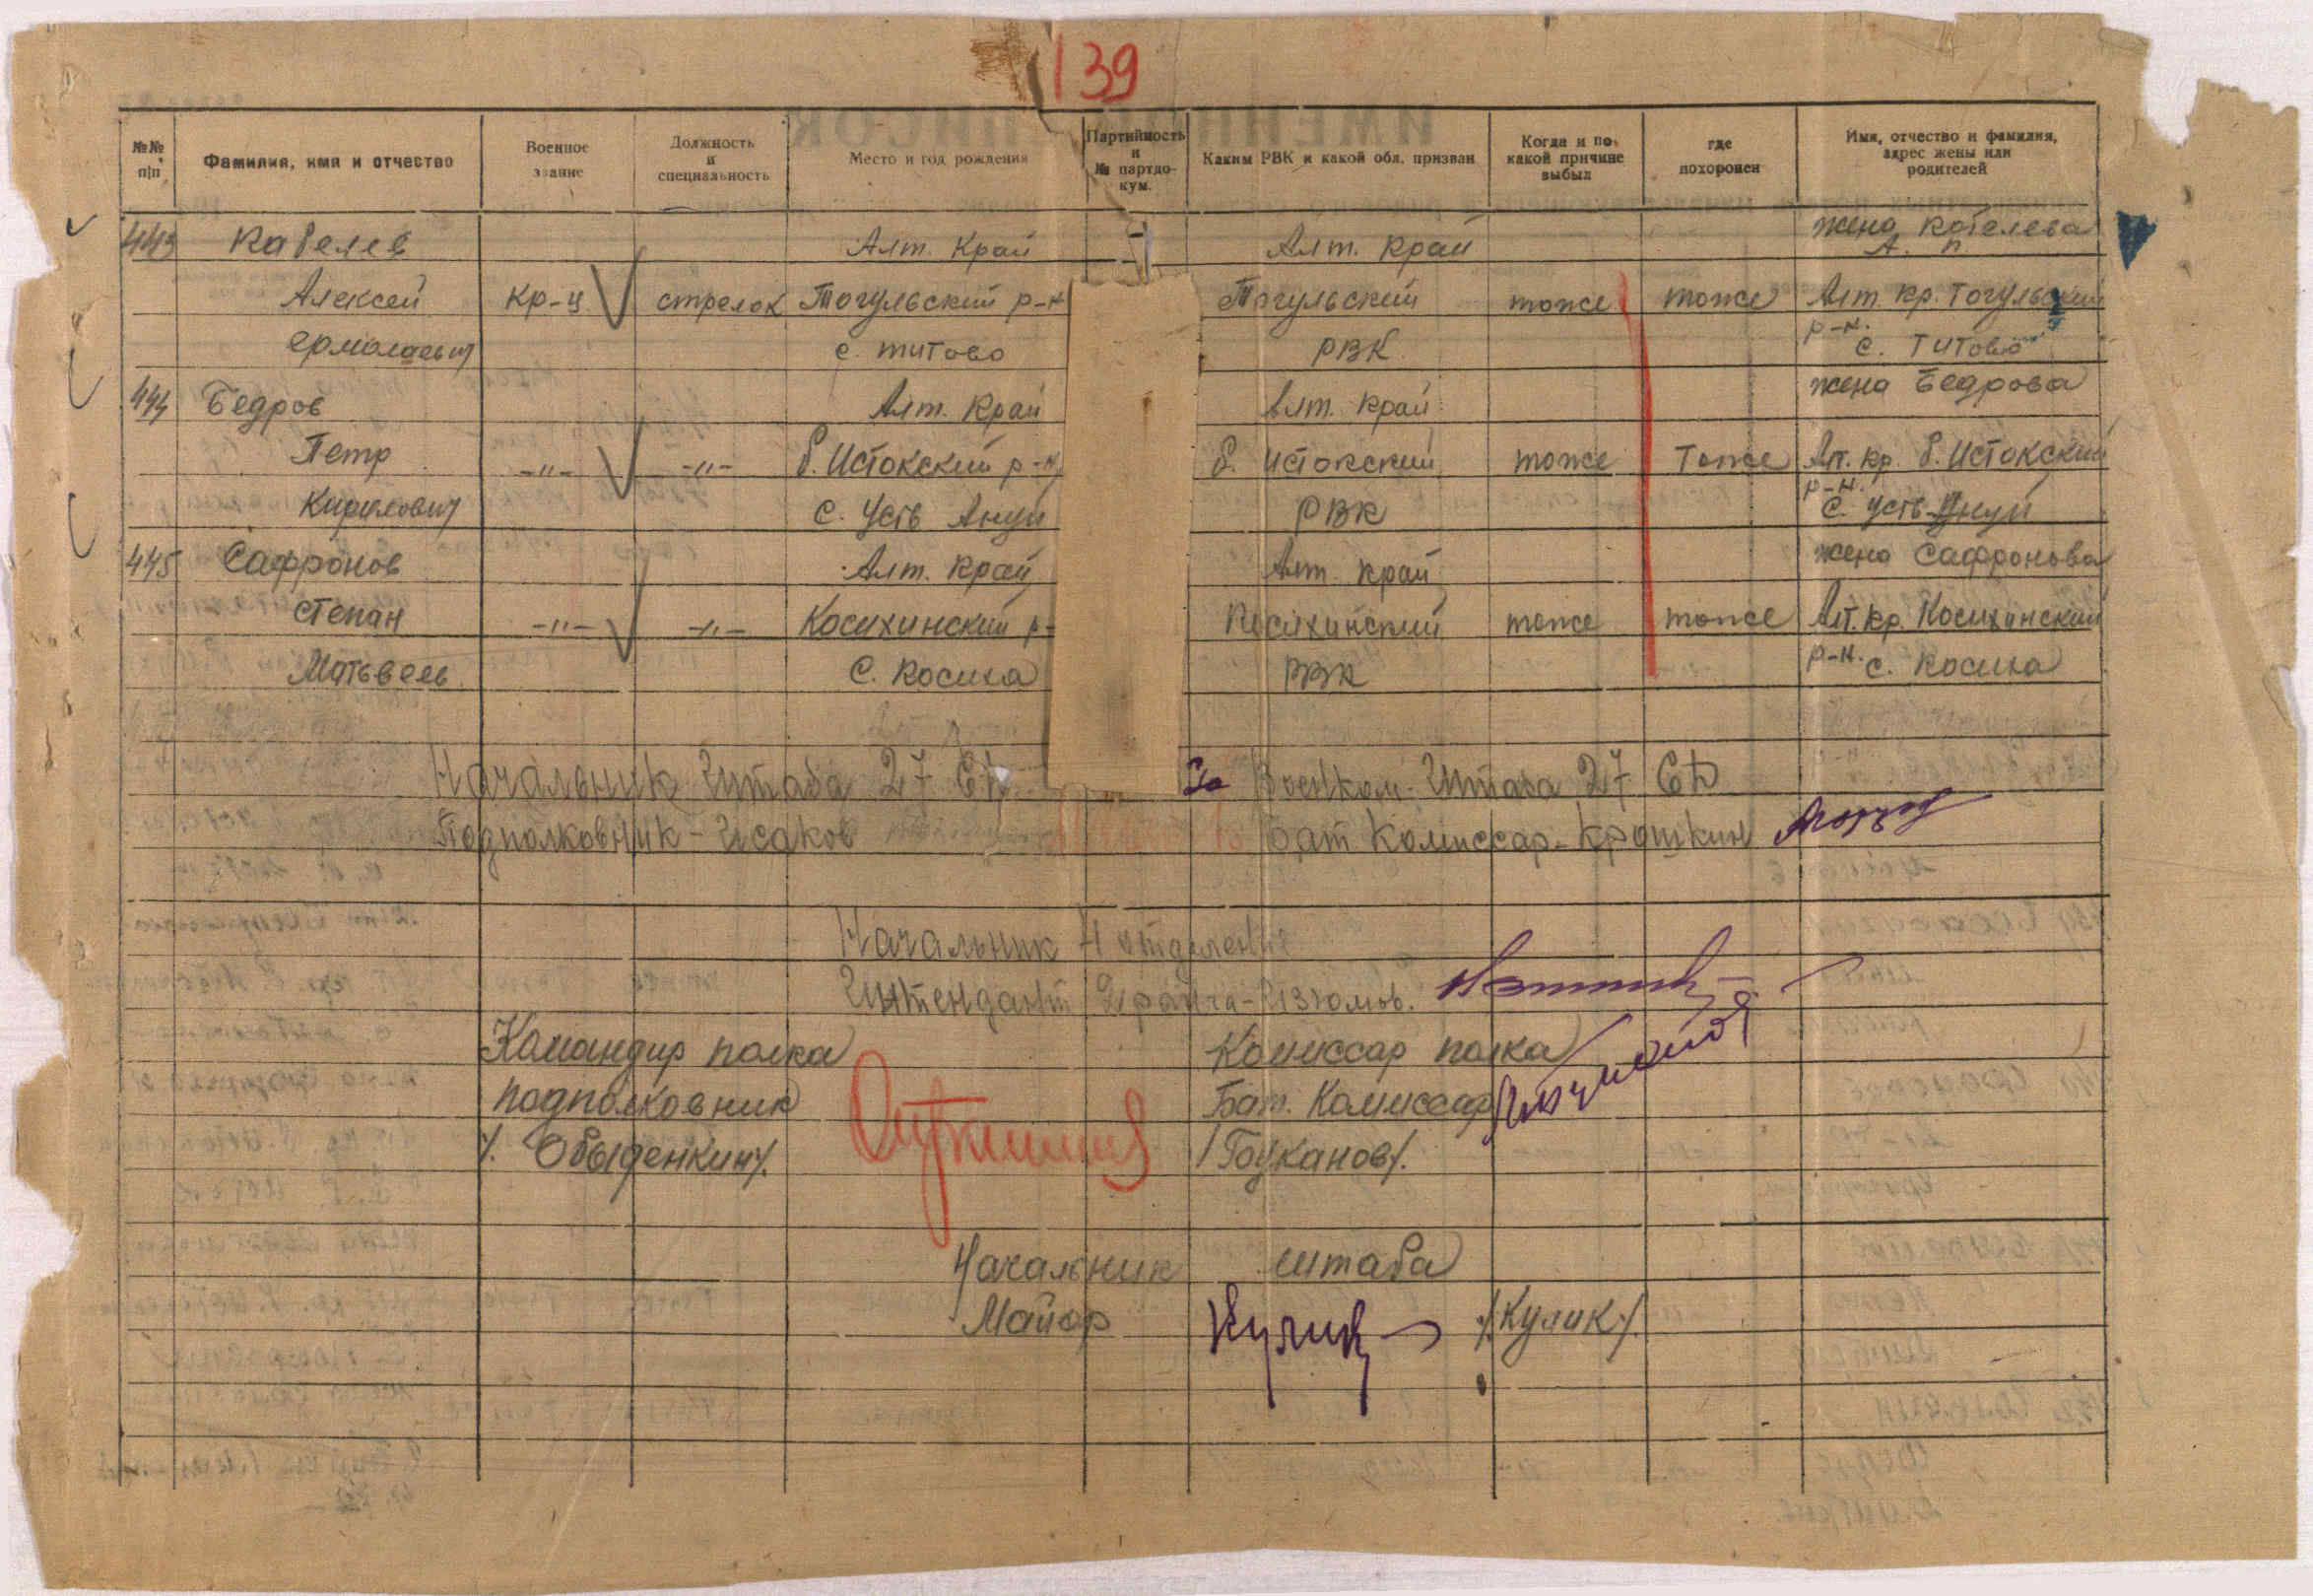 139
№№ п/п Фамилия, имя и отчество Военное звание Должность и специальность Место и год рождения Партийность и № партдокум. Каким РВК и какой обл. призван Когда и по какой причине выбыл где похоронен Имя, отчество и фамилия, адрес жены или родителей
443 Кабелев Алт. Край Алт. край жена Кобелева А. П
Алексей Кр-ц стрелок Тогульский р-н Тогульский тоже тоже Алт. кр. Тогульский р-н.
ермолаевич с. титово РВК с. Титово
444 Бедров Алт. Край Алт. край жена Бедрова
Петр -"- -"- б. Истокский р-н б. Истокский тоже тоже Алт. кр. б. Истокский р-н.
Кирилович с. Усть Ануй РВК с. Усть-Ануй
445 Сафронов Алт. край Алт. край жена Сафронова
Степан -"- -"- Косихинский р- Косихинский тоже тоже Алт. кр. Косихинский р-н.
Матьвель с. Косиха РВК с. Косиха
Начальник Штаба 27 СД За Военком. Штаба 27 СД
Подполковник - Исаков Бат Комиссар - Крошкин
Начальник 4 отделения
Интендант 2 ранга - Изюмов.
Командир полка Комиссар полка
подполковник Бат. Комиссар
/. Обыденкин/. /Гоуканов/.
Начальник штаба
Майор Кулик /. Кулик/.